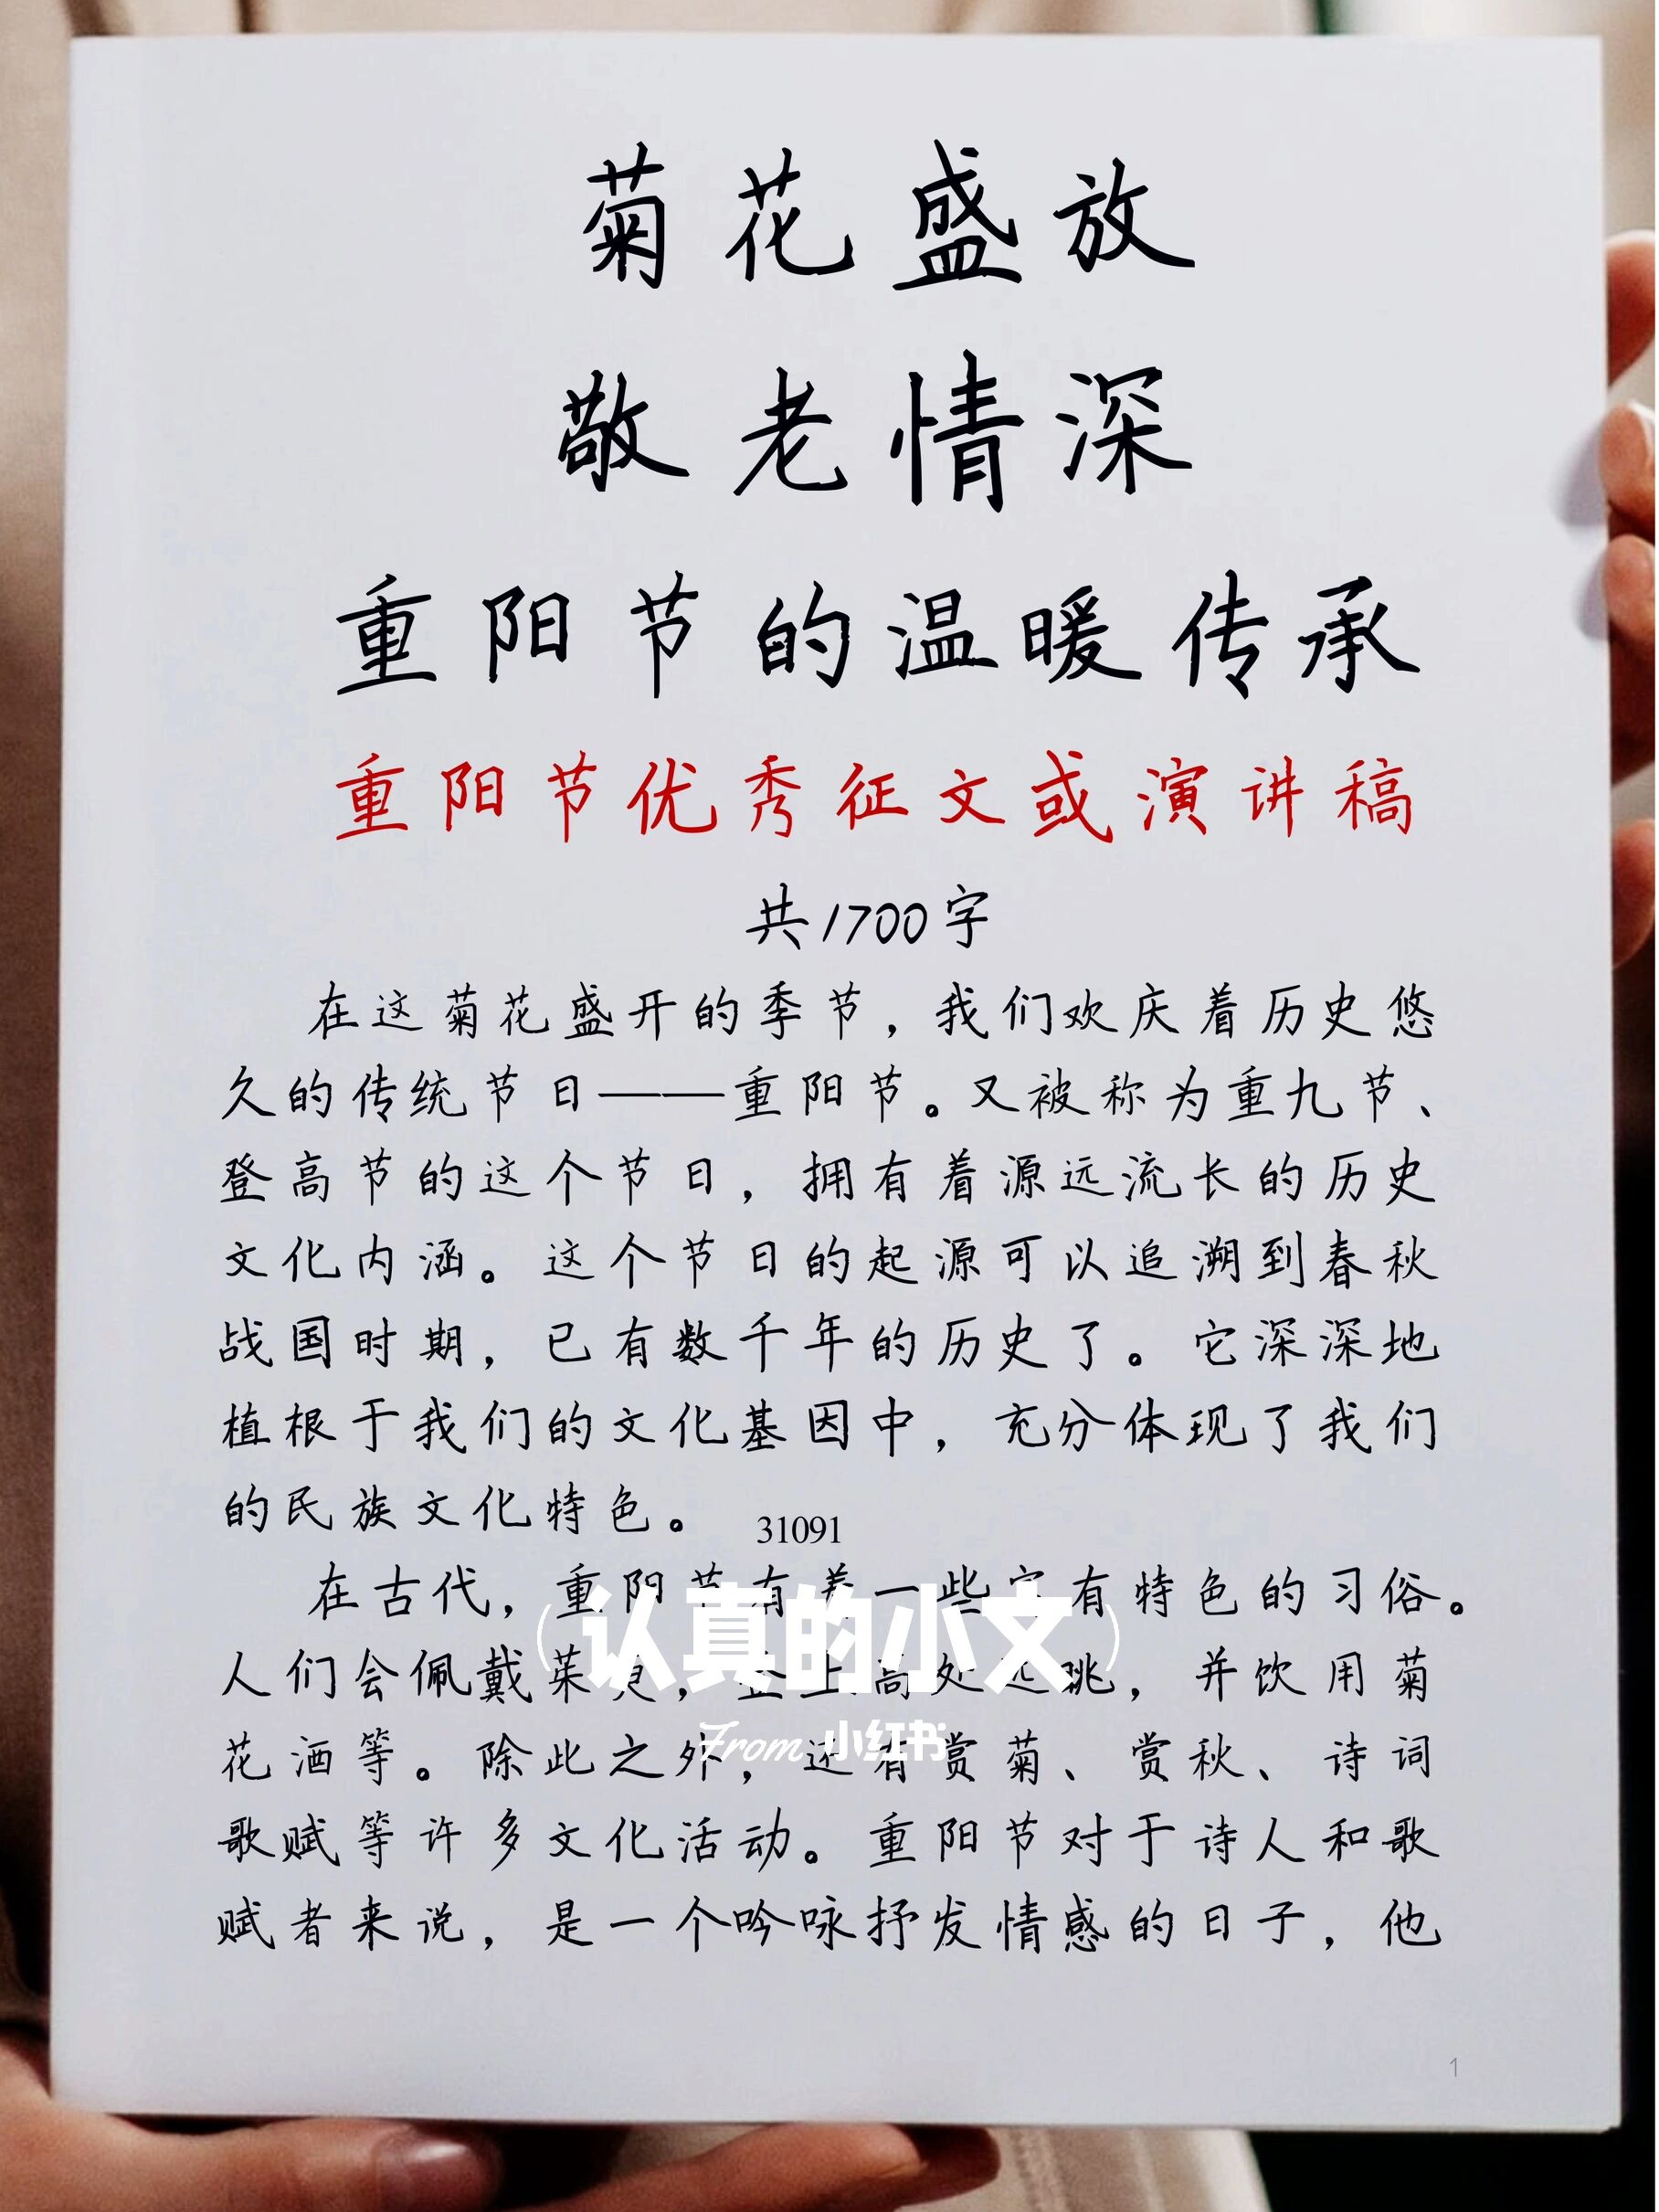 菊花盛放
敬老情深
重阳节的温暖传承
重阳节优秀征文或演讲稿
共1700字
在这菊花盛开的季节，我们欢庆着历史悠
久的传统节日——重阳节。又被称为重九节、
登高节的这个节日，拥有着源远流长的历史
文化内涵。这个节日的起源可以追溯到春秋
战国时期，已有数千年的历史了。它深深地
植根于我们的文化基因中，充分体现了我们
的民族文化特色。
31091
在古代，重阳节有着一些富有特色的习俗。
认真的小文
人们会佩戴茱萸，登上高处远眺，并饮用菊
From 小红书
花酒等。除此之外，还有赏菊、赏秋、诗词
歌赋等许多文化活动。重阳节对于诗人和歌
赋者来说，是一个吟咏抒发情感的日子，他
1